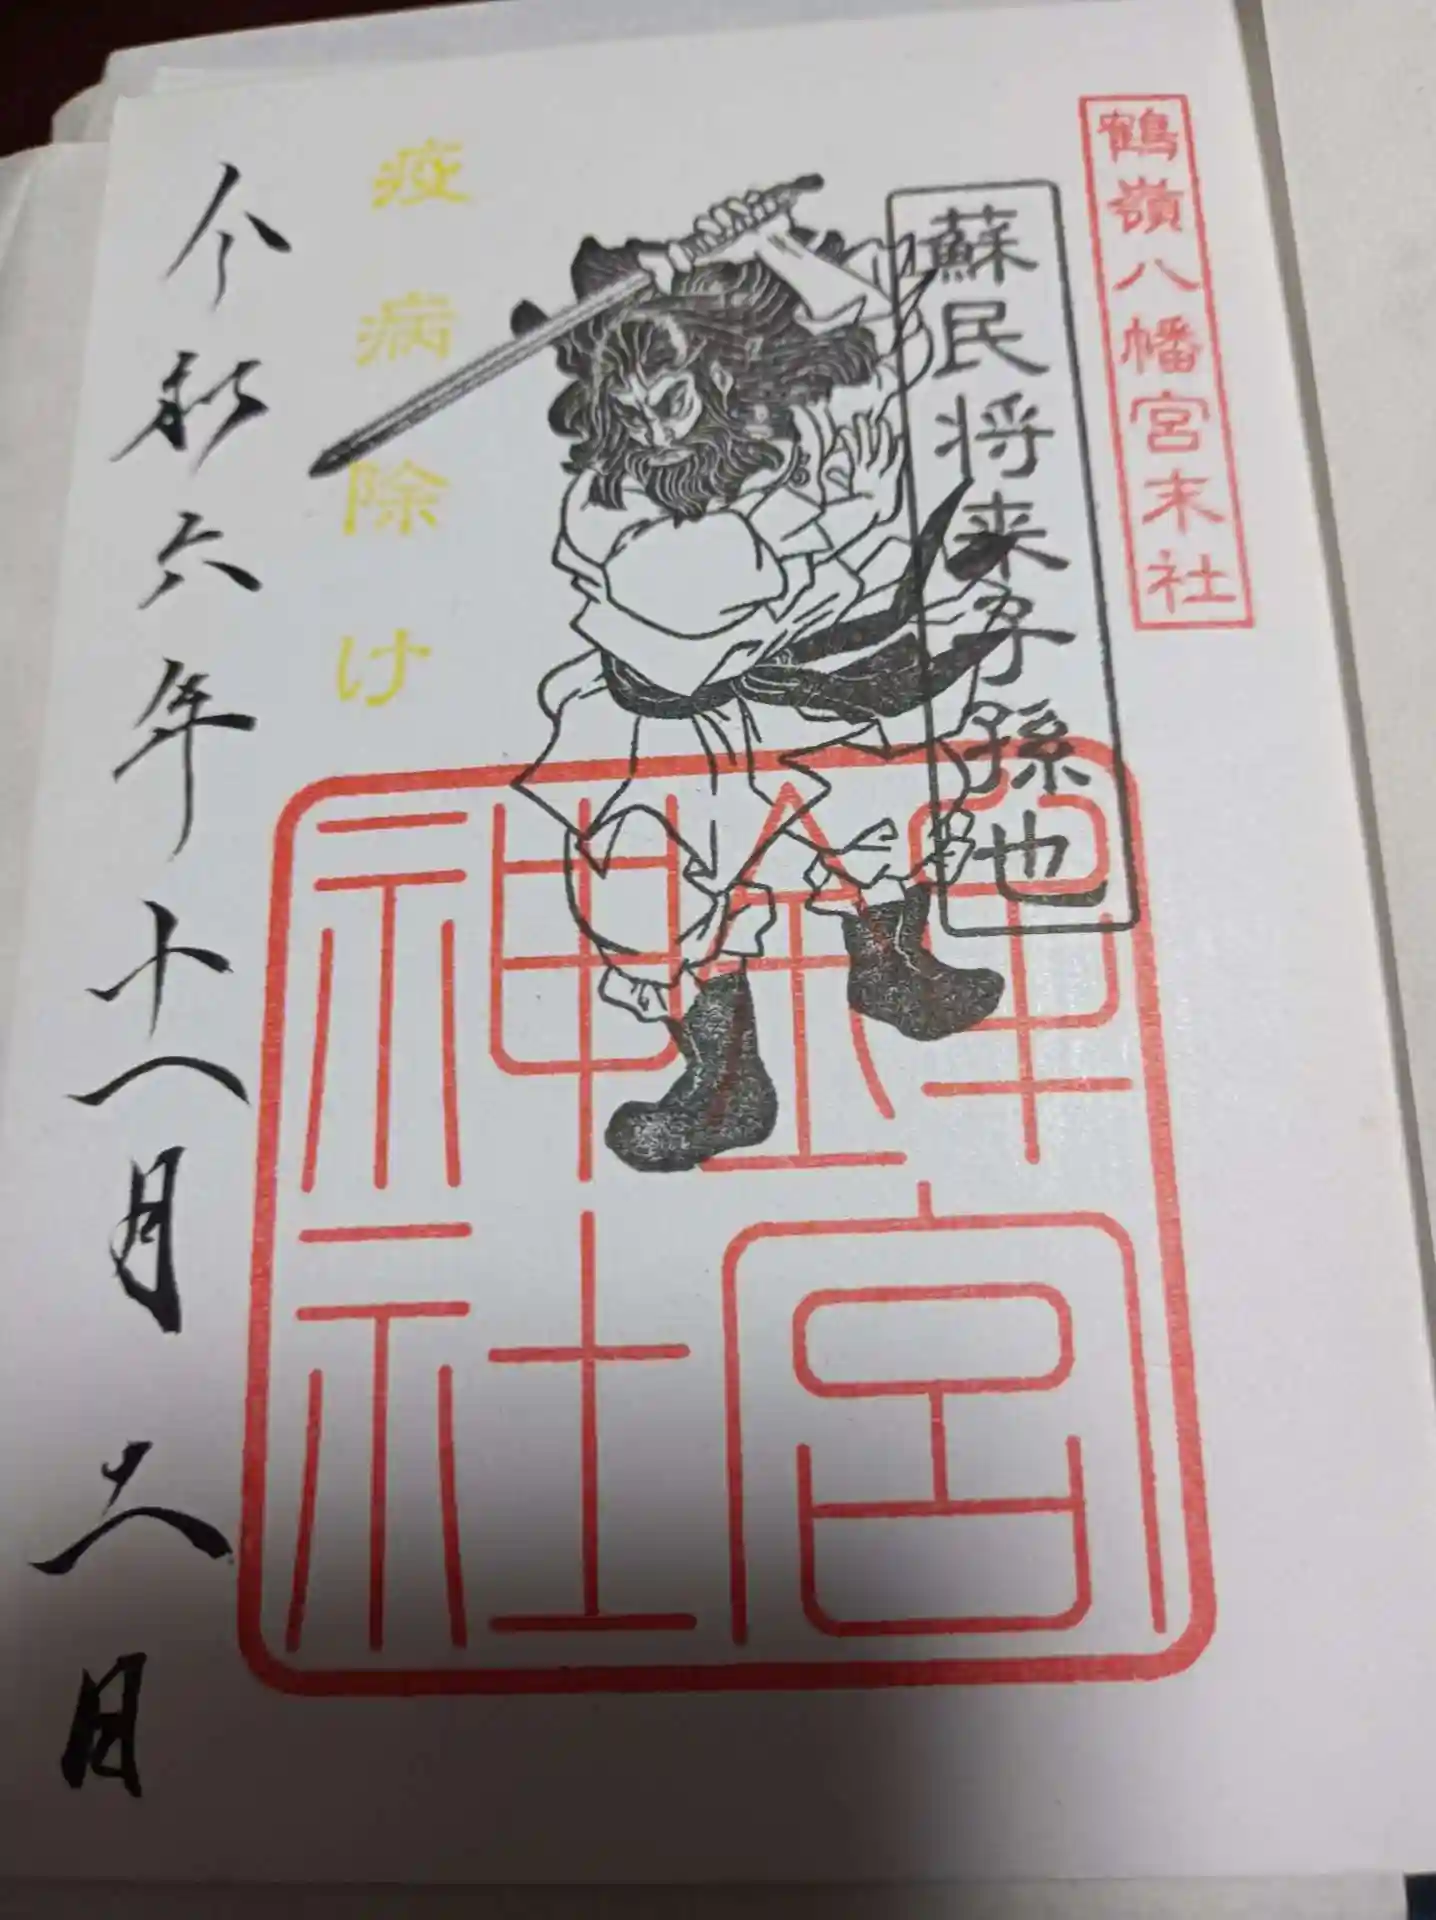 鶴嶺八幡宮末社
蘇民将来子孫也
鉾宮
神社
疫病除け
令和六年十一月 日